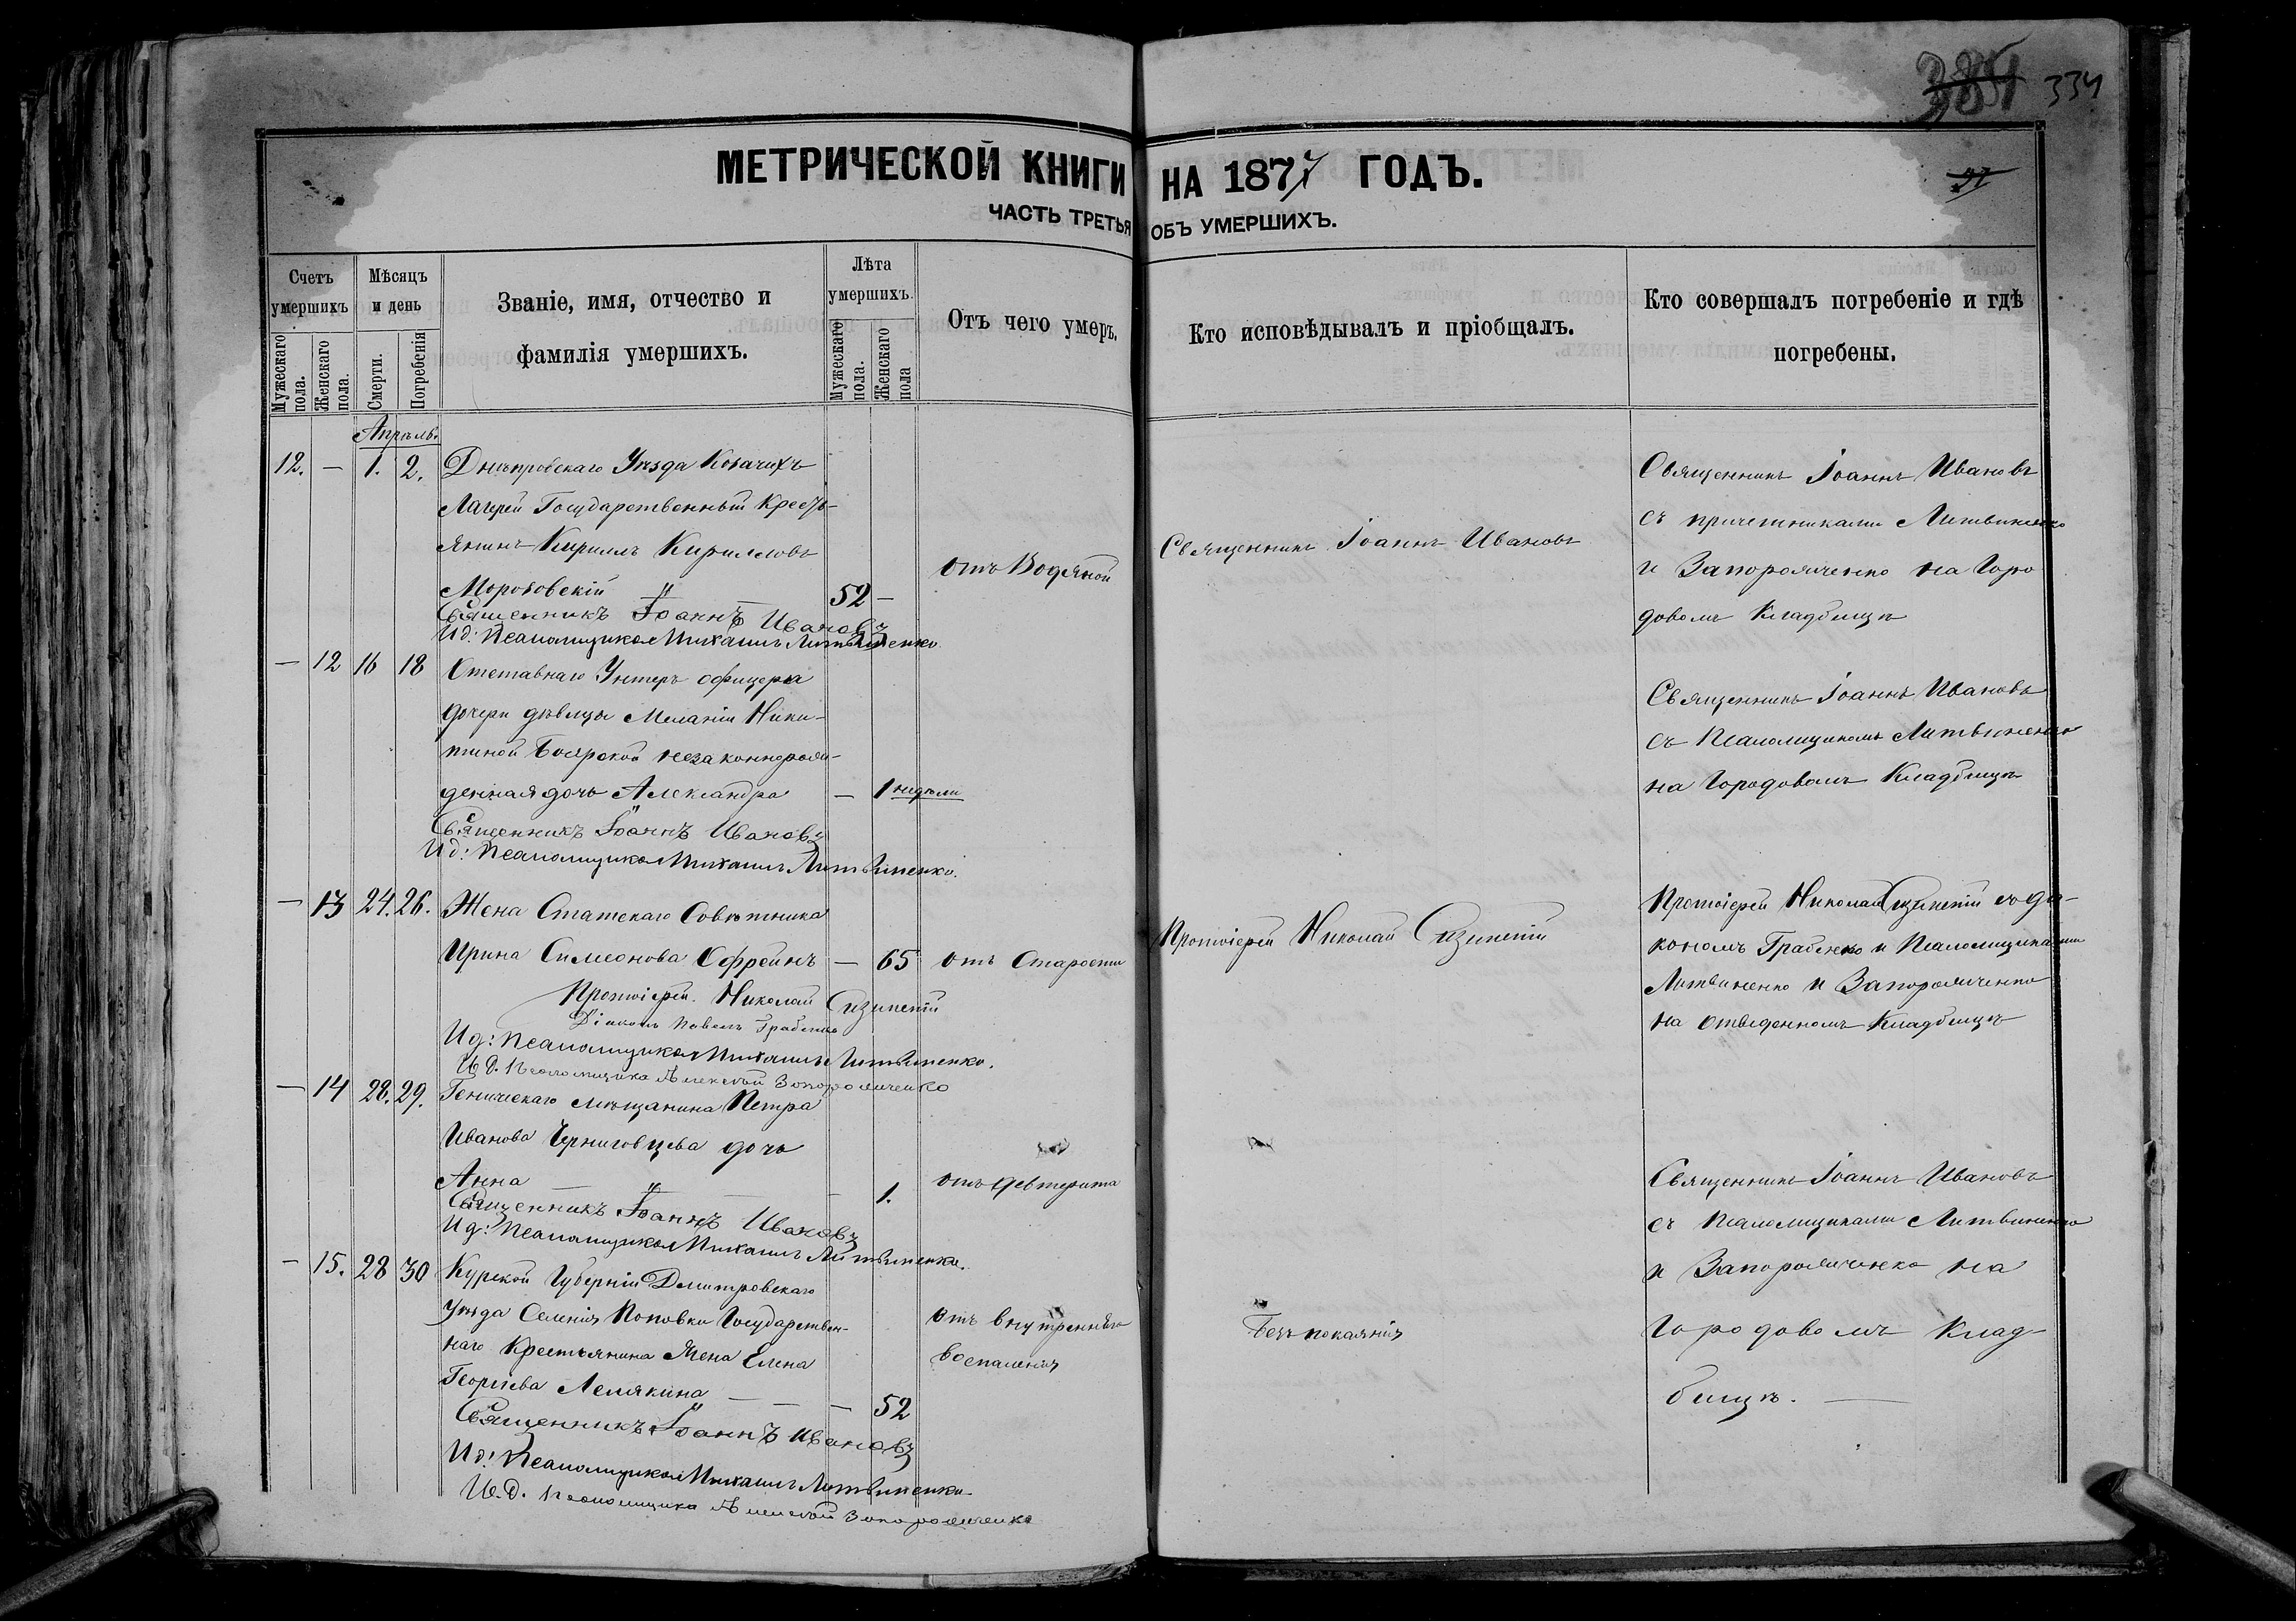 334
МЕТРИЧЕСКОЙ КНИГИ НА 1877 ГОДЪ.
ЧАСТЬ ТРЕТЬЯ ОБЪ УМЕРШИХЪ.
Счетъ умершихъ
Мужескаго пола.
Женскаго пола.
Мѣсяцъ и день
Смерти.
Погребенія
Званіе, имя, отчество и
фамилія умершихъ.
Лѣта умершихъ.
Мужескаго пола.
Женскаго пола
Отъ чего умеръ.
Кто исповѣдывалъ и пріобщалъ.
Кто совершалъ погребеніе и гдѣ
погребены.
Апрѣль.
12. — 1. 2. Днѣпровскаго Уѣзда Козачихъ
Лагерей Государственный Кресть-
янинъ Кириллъ Кирилловъ
Морозовскій 52 —
отъ Водяной
Священникъ Іоаннъ Ивановъ
Священникъ Іоаннъ Ивановъ
съ причетниками Литвиненко
и Запорожченко на Горо
довомъ Кладбищѣ
Священникъ Іоаннъ Ивановъ
И д: Псаломщика Михаилъ Литвиненко.
— 12 16 18 Отставнаго Унтеръ офицера
дочери дѣвицы Меланіи Ники-
тиной Боярской незаконнорож-
денная дочь Александра — 1 недѣли
Священникъ Іоаннъ Ивановъ
съ Псаломщикомъ Литвиненко
на Городовомъ Кладбищѣ
Священникъ Іоаннъ Ивановъ
И д: Псаломщика Михаилъ Литвиненко.
— 13 24. 26. Жена Статскаго Совѣтника
Ирина Симеонова Офрейнъ — 65 отъ Старости
Протоіерей Николай Сизинетій
Протоіерей Николай Сизинетій съ діа-
кономъ Грабенко и Псаломщиками
Литвиненко и Запорожченко
на отведенномъ Кладбищѣ
Протоіерей Николай Сизинетій
Діаконъ Павелъ Грабенко
И д: Псаломщика Михаилъ Литвиненко.
И. д. Псаломщика Алексѣй Запорожченко
— 14 28. 29. Геническаго мѣщанина Петра
Иванова Черниговцева дочь
Анна — — — 1.
отъ девтерита
Священникъ Іоаннъ Ивановъ
И д: Псаломщика Михаилъ Литвиненко.
Священникъ Іоаннъ Ивановъ
съ Псаломщиками Литвиненко
и Запорожченко на
Городовомъ Клад-
бищѣ. —
— 15. 28 30 Курской Губерніи Дмитровскаго
Уѣзда Селенія Поповки Государствен-
наго Крестьянина Жена Елена
Георгіева Лемякина — — 52
отъ внутренняго
воспаленія
Безъ покаянія
Священникъ Іоаннъ Ивановъ
И д: Псаломщика Михаилъ Литвиненко.
И. д. Псаломщика Алексѣй Запорожченко